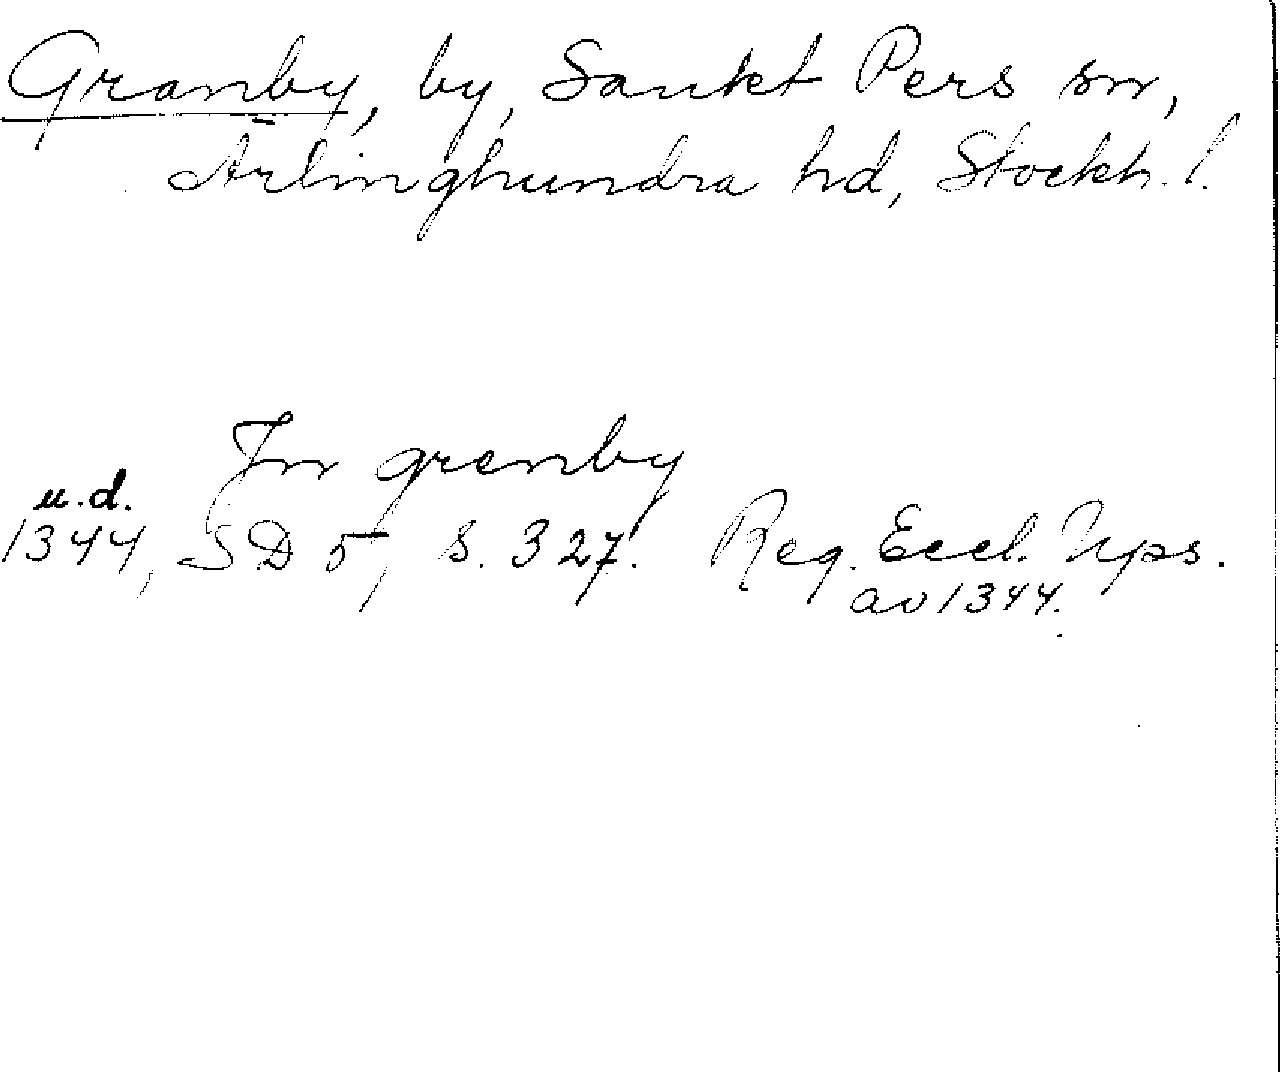 Granby, by, Sankt Pers sn,
Ärlinghundra hd, Stockh. l.
In grenby
u.d.
1344, SD 5, s. 327. Reg. Eccl. Ups.
av 1344.